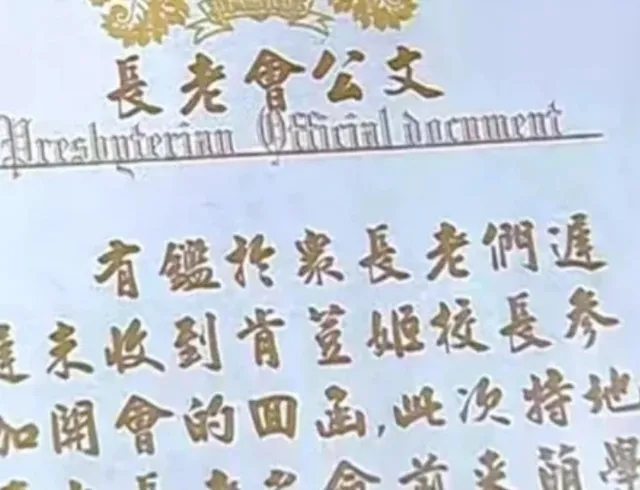 長老會公文
Presbyterian Official document
有鑑於眾長老們遲
遲未收到肯荳姬校長參
加開會的回函,此次特地
會前來萌學